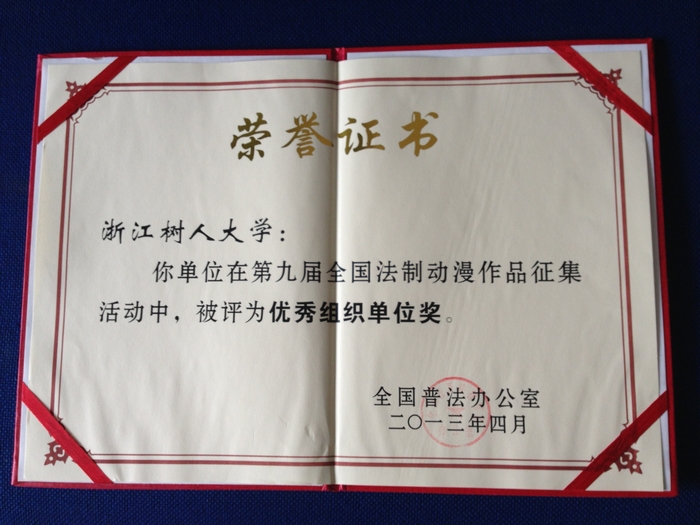 荣誉证书
浙江树人大学：
你单位在第九届全国法制动漫作品征集
活动中，被评为优秀组织单位奖。
全国普法办公室
二〇一三年四月